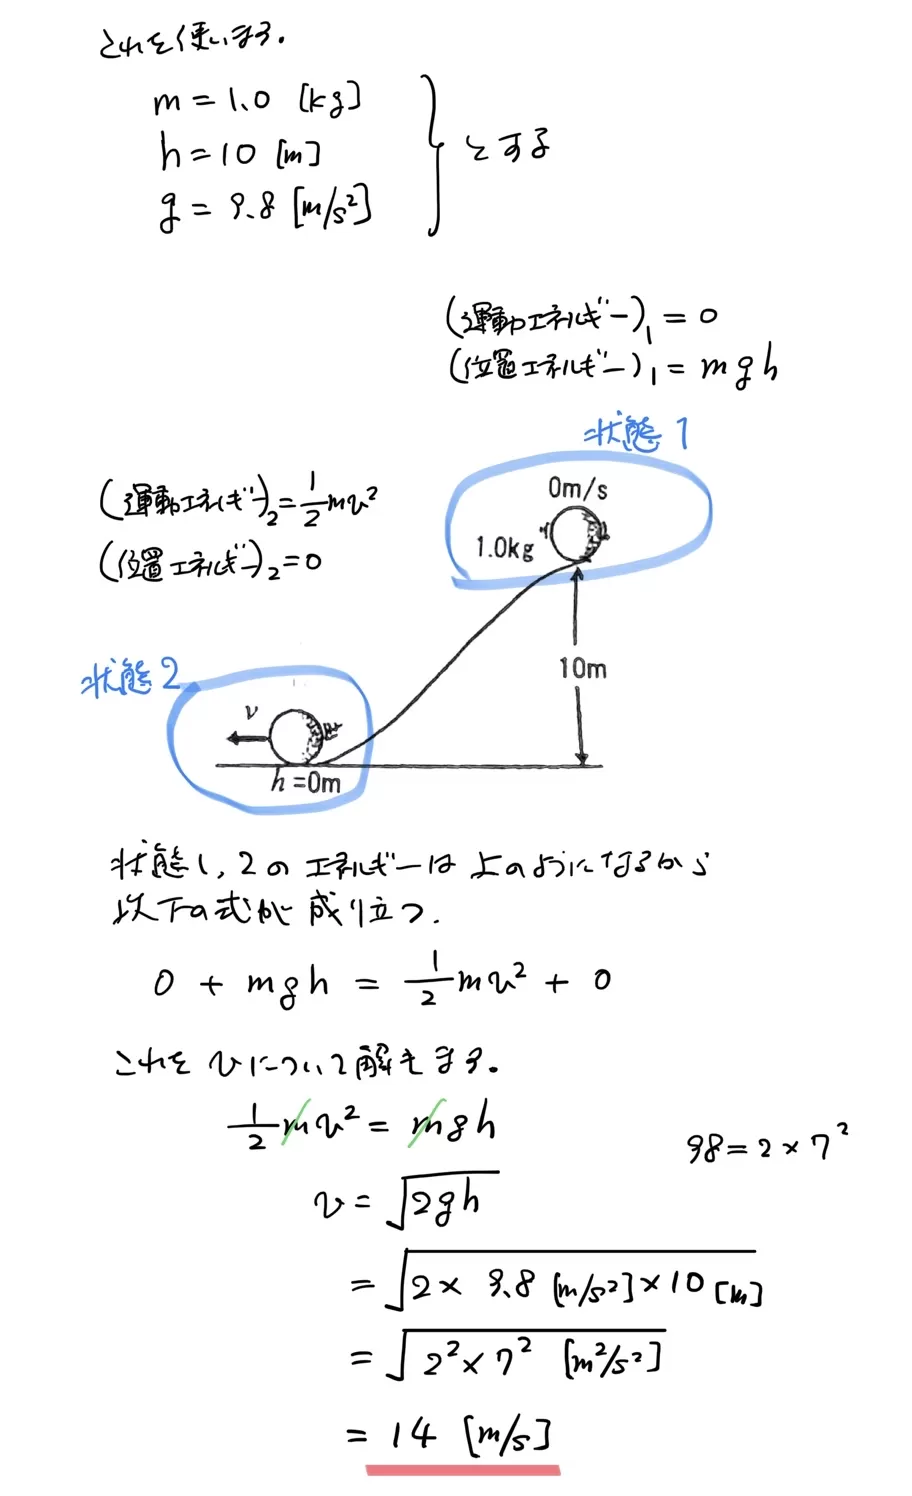 これを使います.
m = 1.0 [kg]
h = 10 [m]
g = 9.8 [m/s²]
とする
(運動エネルギー)₁ = 0
(位置エネルギー)₁ = mgh
状態1
(運動エネルギー)₂ = 1/2 mv²
(位置エネルギー)₂ = 0
0m/s
1.0kg
10m
状態2
v
h=0m
状態1,2のエネルギーは上のようになるから
以下の式が成り立つ.
0 + mgh = 1/2 mv² + 0
これをvについて解きます.
1/2 mv² = mgh
98 = 2 × 7²
v = √2gh
= √2 × 9.8 [m/s²] × 10 [m]
= √2² × 7² [m²/s²]
= 14 [m/s]